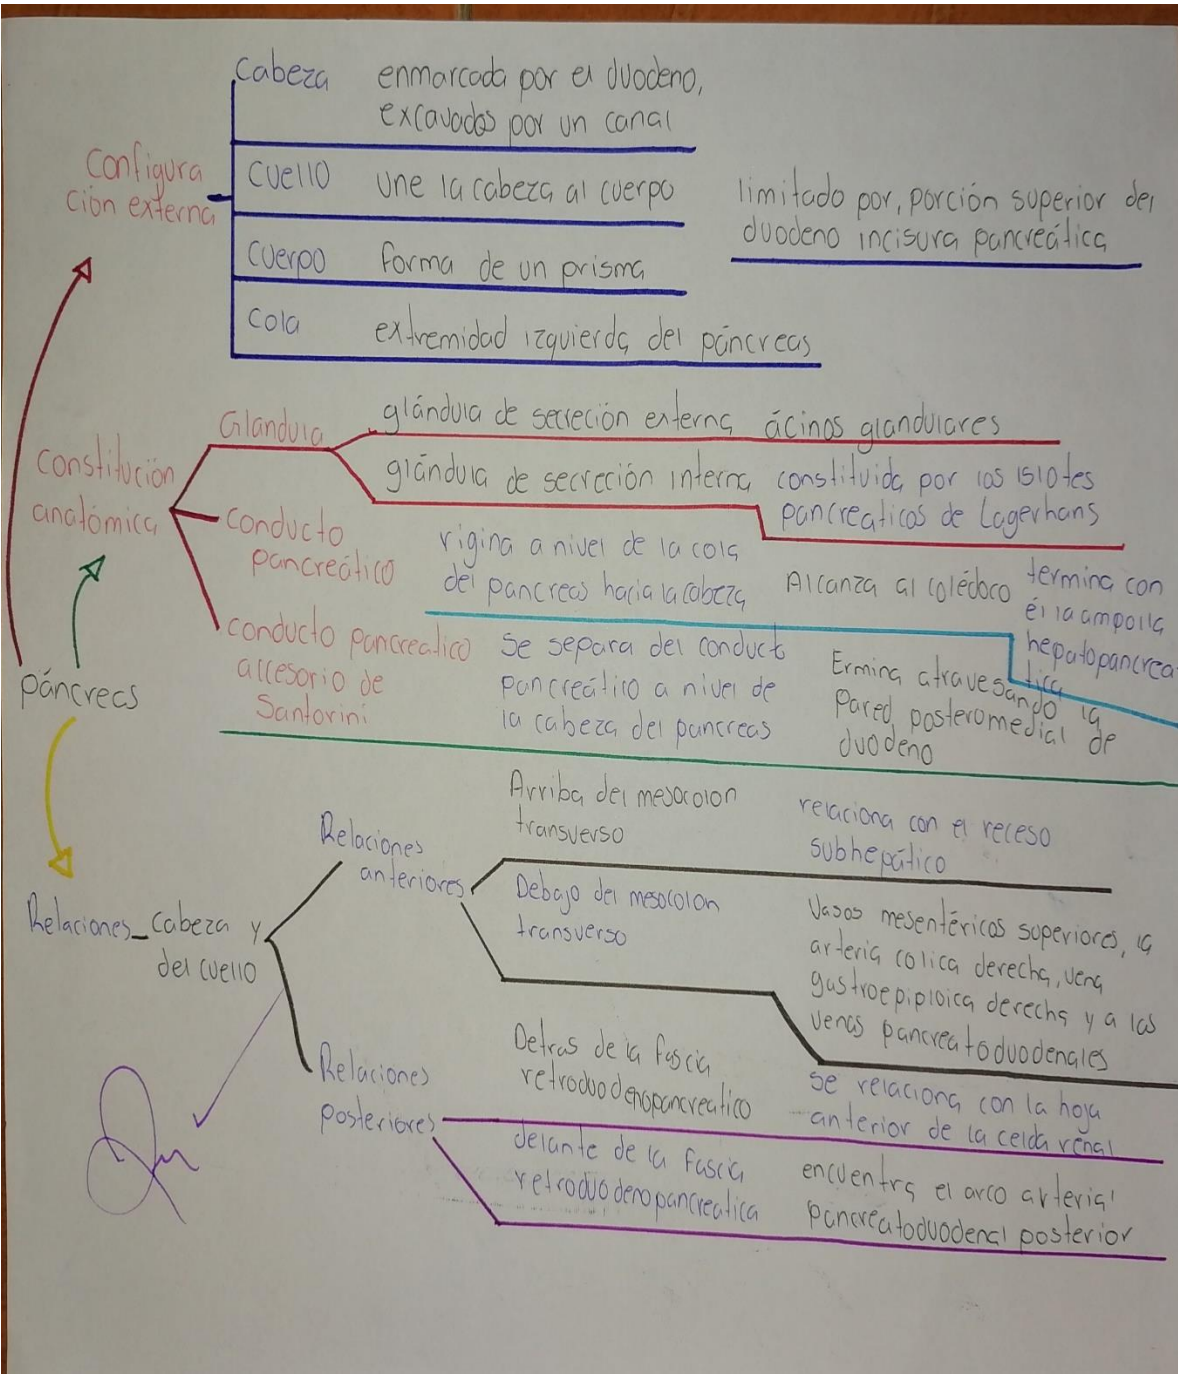 Cabeza enmarcada por el duodeno,
excavados por un canal
Configura
ción externa
Cuello une la cabeza al cuerpo
limitado por, porción superior del
duodeno incisura pancreática
Cuerpo forma de un prisma
Cola extremidad izquierda del páncreas
Constitución
anatómica
Glandula
glándula de secreción externa ácinos glandulares
glándula de secreción interna constituida por los islotes
pancreaticos de Lagerhans
conducto
pancreático
rigina a nivel de la cola
del pancreas hacia la cabeza
Alcanza al colédoco
termina con
él la ampolla
hepatopancrea
tica
conducto pancreatico
accesorio de
Santorini
se separa del conduct
pancreático a nivel de
la cabeza del pancreas
Ermina atravesando la
Pared posteromedial de
duodeno
páncreas
Relaciones_cabeza y
del cuello
Relaciones
anteriores
Arriba del mesocolon
transverso
relaciona con el receso
subhepático
Debajo del mesocolon
transverso
Vasos mesentéricos superiores, la
arteria colica derecha, vena
gastroepiploica derecha y a las
venas pancreatoduodenales
Relaciones
posteriores
Detras de la fascia
retroduodenopancreatico
se relaciona con la hoja
anterior de la celda renal
delante de la fascia
retroduodenopancreatica
encuentra el arco arterial
pancreatoduodenal posterior